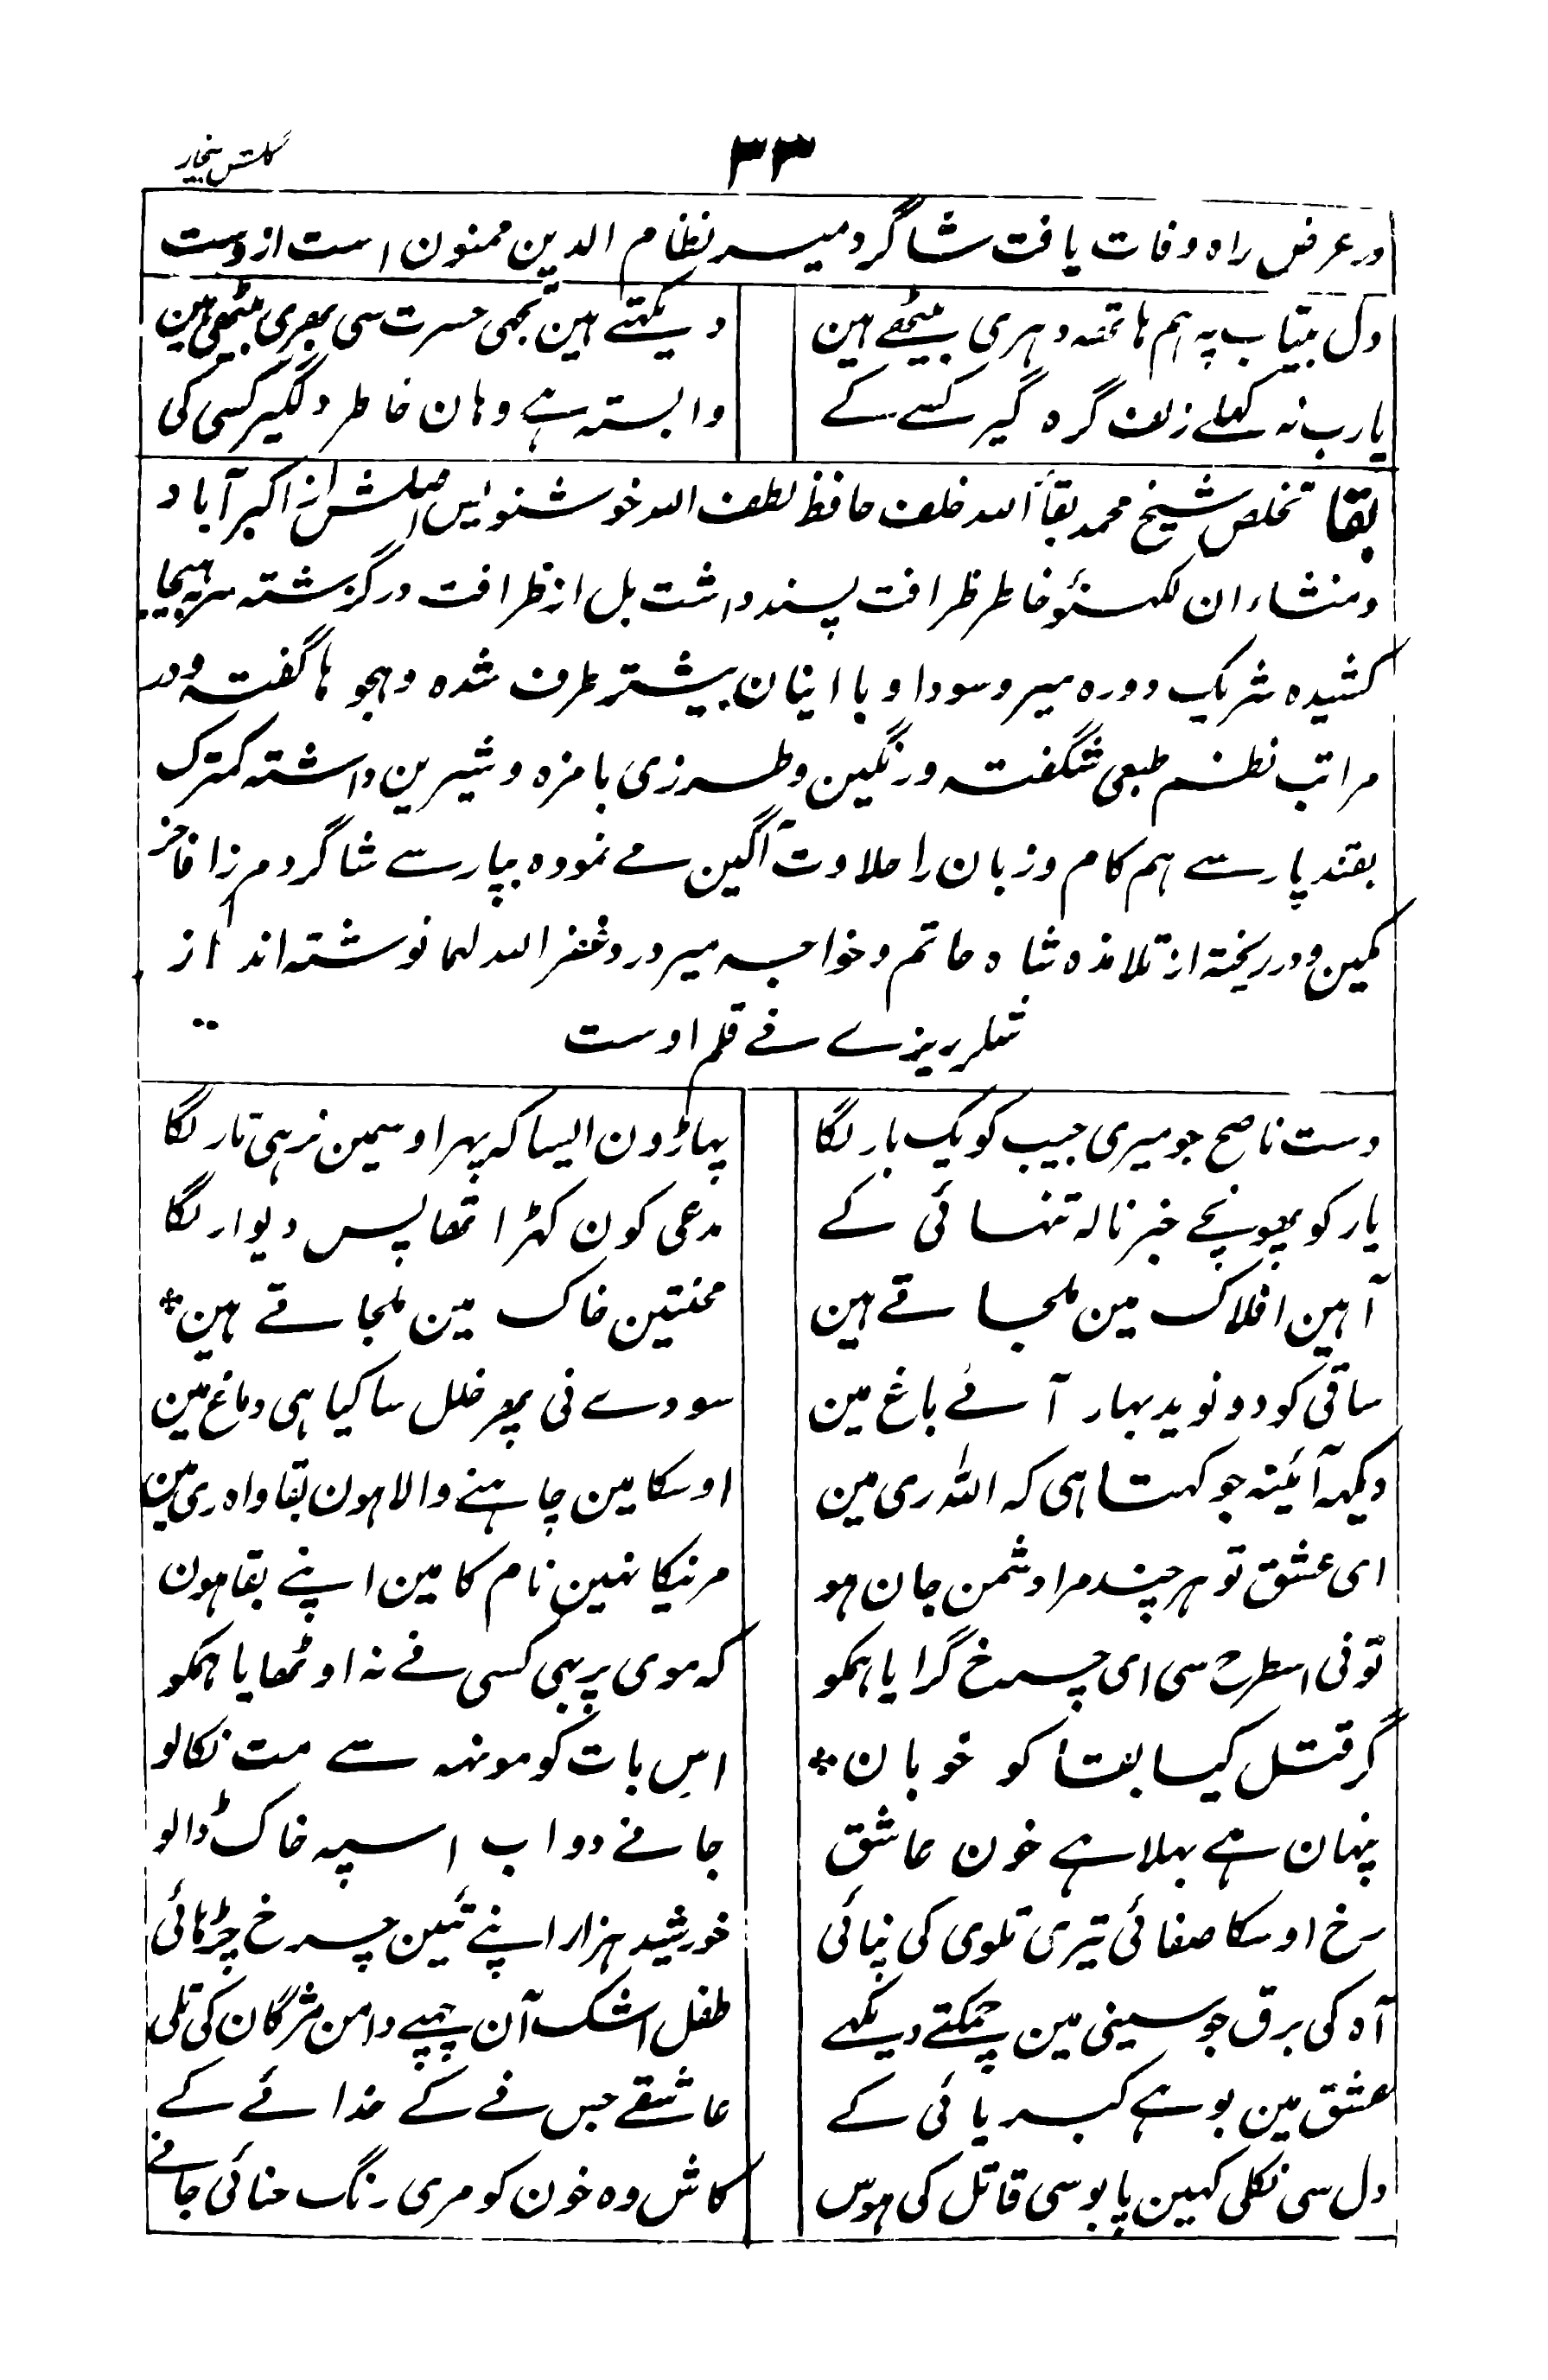 گلشن بیخار
۳۳
در عرض راہ وفات یافت شاگرد میر نظام الدین ممنون است ازوست
دل بیتاب پہ ہم ہاتھہ دہری بیٹھے ہین
دیکہتے ہین تجھی حسرت سی بھری بیٹھی ہین
یارب نہ کہلے زلف گرہ گیر کسے کے
وابستہ ہے وہان خاطر دلگیر کسی کی
بقا تخلص شیخ محمد بقأ اللہ خلف حافظ لطف اللہ خوشنویس اصلش از اکبرآباد
و منشاءان لکہنؤ خاطر ظرافت پسند داشت بل از ظرافت درگزشتہ سر بہیجا
کشیدہ شریک دورہ میر و سودا و با اینان بیشتر طرف شدہ و ہجو ہا گفتہ و در
مراتب نظم طبعی شگفتہ و رنگین و طرزی بامزہ و شیرین داشتہ کمترک
بقند پارسے ہم کام و زبان را حلاوت آگین مے نمودہ بپارسے شاگرد مرزا فاخر
مکین و در ریختہ از تلامذہ شاہ حاتم و خواجہ میر درد غفر اللہ لہما نوشتہ اند از
شکر ریزے نے قلم اوست
دست ناصح جو میری جیب کو یک بار لگا
پہاڑون ایسا کہ پہر اوسمین نرہی تار لگا
یار کو پھونچے خبر نالہ تنہائی کے
مدعی کون کہڑا تھا پس دیوار لگا
آہین افلاک مین ملجاتے ہین
محنتین خاک مین ملجاتے ہین *
ساقی کو دو نوید بہار آئے باغ مین
سودے نی پھر خلل سا کیا ہی دماغ مین
دیکہہ آئینہ جو کہتا ہی کہ اللہ ری مین
اوسکا مین چاہنے والا ہون بقا واہ ری مین
ای عشق تو ہر چند مرا دشمن جان ہو
مرنیکا نہین نام کا مین اپنے بقا ہون
تونی اسطرح سی ای چرخ گرایا ہمکو
کہ موی پر بہی کسی نے نہ اوٹھایا ہمکو
گر قتل کیا بقا کو خوبان *
اس بات کو مونہہ سے مت نکالو
پنہان ہے بہلا ہے خون عاشق
جانے دو اب اسپہ خاک ڈالو
رخ اوسکا صفائی تیری تلوی کی نپائی
خورشید ہزار اپنے تئین چرخ چڑہائی
آہ کی برق جو سینی مین چمکتے دیکہے
طفل اشک آن چہپے دامن مژگان کی تلی
عشق مین بو ہے کبریائی کے
عاشقے جس نے کے خدائے کے
دل سی نکلی کہین پابوسی قاتل کی ہوس
کاش وہ خون کو مری رنگ حنائی جانے